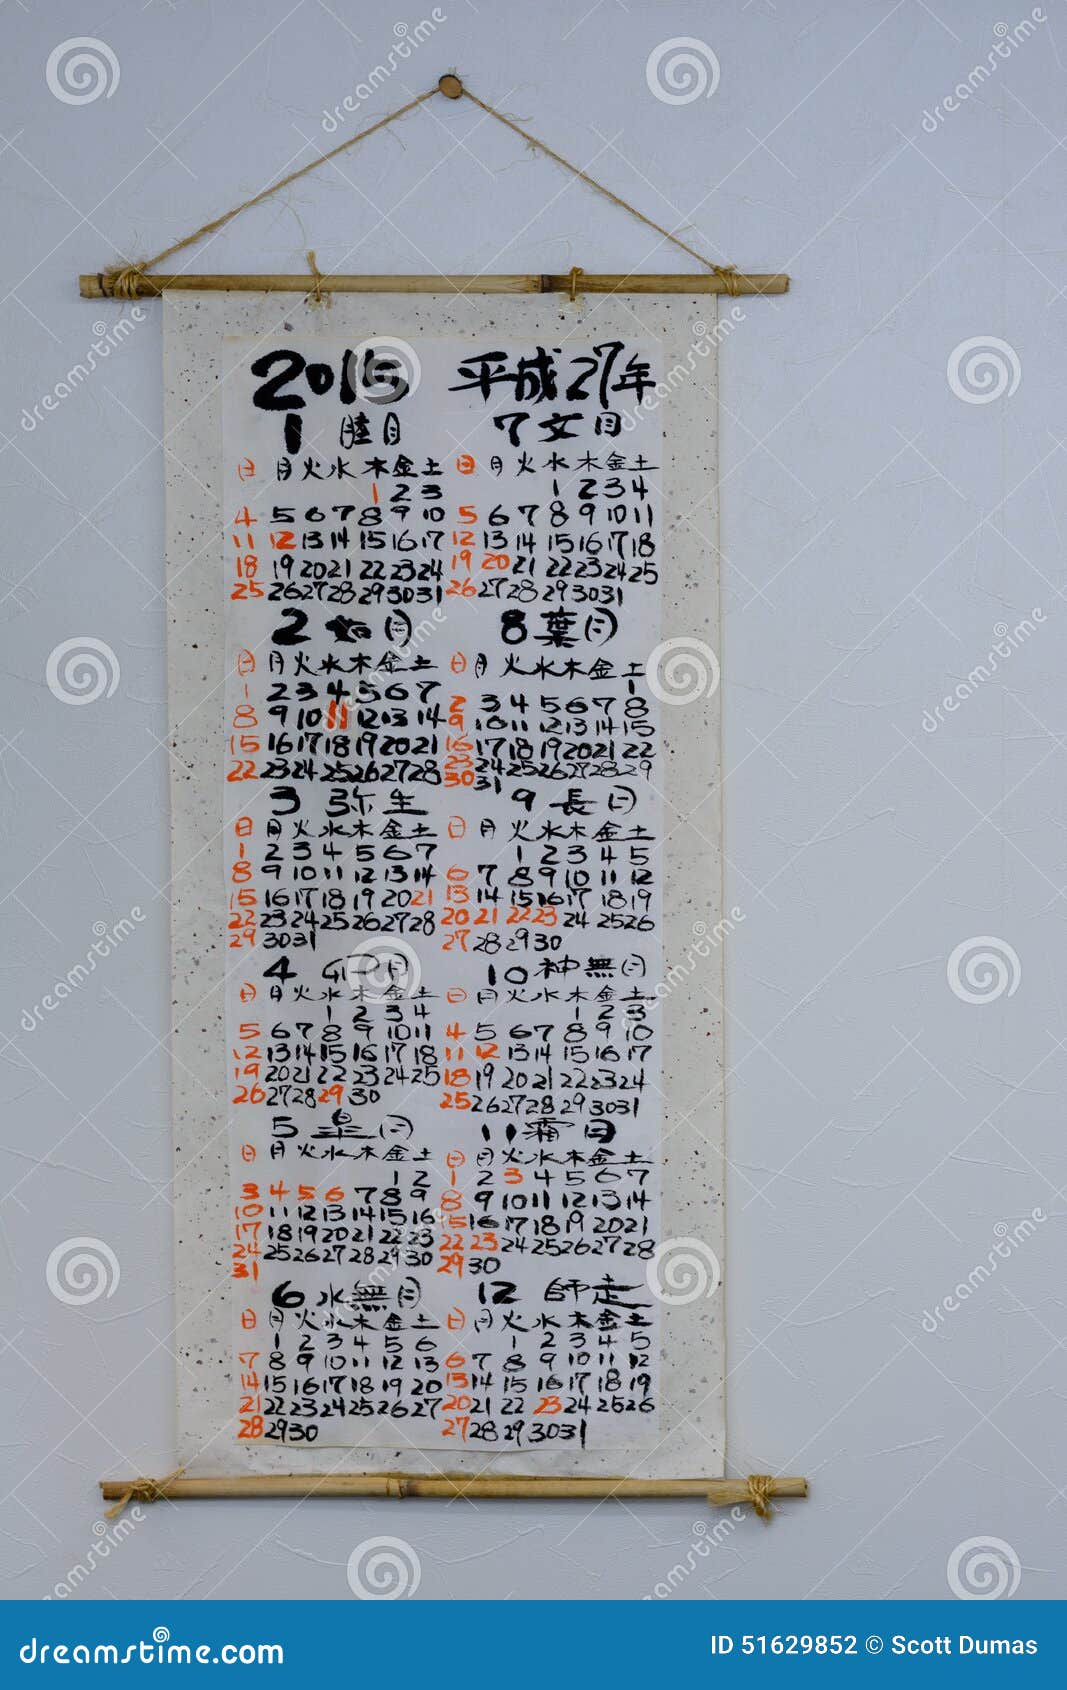 2015 平成27年
1 睦月
日 月 火 水 木 金 土
1 2 3
4 5 6 7 8 9 10
11 12 13 14 15 16 17
18 19 20 21 22 23 24
25 26 27 28 29 30 31
2 如月
日 月 火 水 木 金 土
1 2 3 4 5 6 7
8 9 10 11 12 13 14
15 16 17 18 19 20 21
22 23 24 25 26 27 28
3 弥生
日 月 火 水 木 金 土
1 2 3 4 5 6 7
8 9 10 11 12 13 14
15 16 17 18 19 20 21
22 23 24 25 26 27 28
29 30 31
4 卯月
日 月 火 水 木 金 土
1 2 3 4
5 6 7 8 9 10 11
12 13 14 15 16 17 18
19 20 21 22 23 24 25
26 27 28 29 30
5 皐月
日 月 火 水 木 金 土
1 2
3 4 5 6 7 8 9
10 11 12 13 14 15 16
17 18 19 20 21 22 23
24 25 26 27 28 29 30
31
6 水無月
日 月 火 水 木 金 土
1 2 3 4 5 6
7 8 9 10 11 12 13
14 15 16 17 18 19 20
21 22 23 24 25 26 27
28 29 30
7 文月
日 月 火 水 木 金 土
1 2 3 4
5 6 7 8 9 10 11
12 13 14 15 16 17 18
19 20 21 22 23 24 25
26 27 28 29 30 31
8 葉月
日 月 火 水 木 金 土
1
2 3 4 5 6 7 8
9 10 11 12 13 14 15
16 17 18 19 20 21 22
23 24 25 26 27 28 29
30 31
9 長月
日 月 火 水 木 金 土
1 2 3 4 5
6 7 8 9 10 11 12
13 14 15 16 17 18 19
20 21 22 23 24 25 26
27 28 29 30
10 神無月
日 月 火 水 木 金 土
1 2 3
4 5 6 7 8 9 10
11 12 13 14 15 16 17
18 19 20 21 22 23 24
25 26 27 28 29 30 31
11 霜月
日 月 火 水 木 金 土
1 2 3 4 5 6 7
8 9 10 11 12 13 14
15 16 17 18 19 20 21
22 23 24 25 26 27 28
29 30
12 師走
日 月 火 水 木 金 土
1 2 3 4 5
6 7 8 9 10 11 12
13 14 15 16 17 18 19
20 21 22 23 24 25 26
27 28 29 30 31
dreamstime.com
ID 51629852 © Scott Dumas